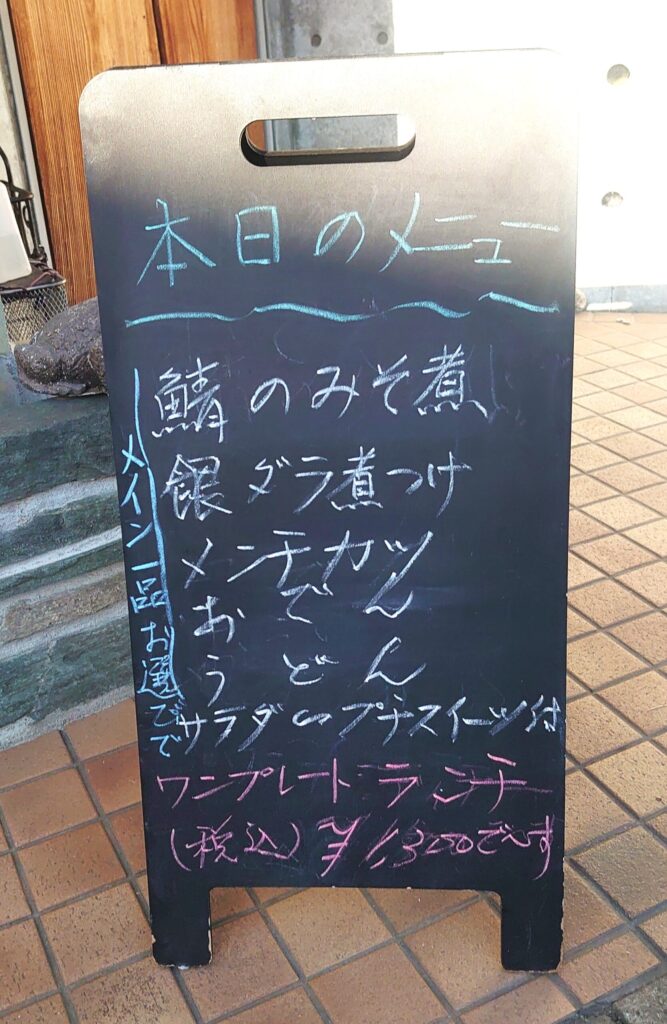 本日のメニュー
鯖のみそ煮
銀ダラ煮つけ
メンチカツ
おでん
うどん
メイン一品お選びで
サラダ プチスイーツ付
ワンプレートランチ
(税込)¥1,300です